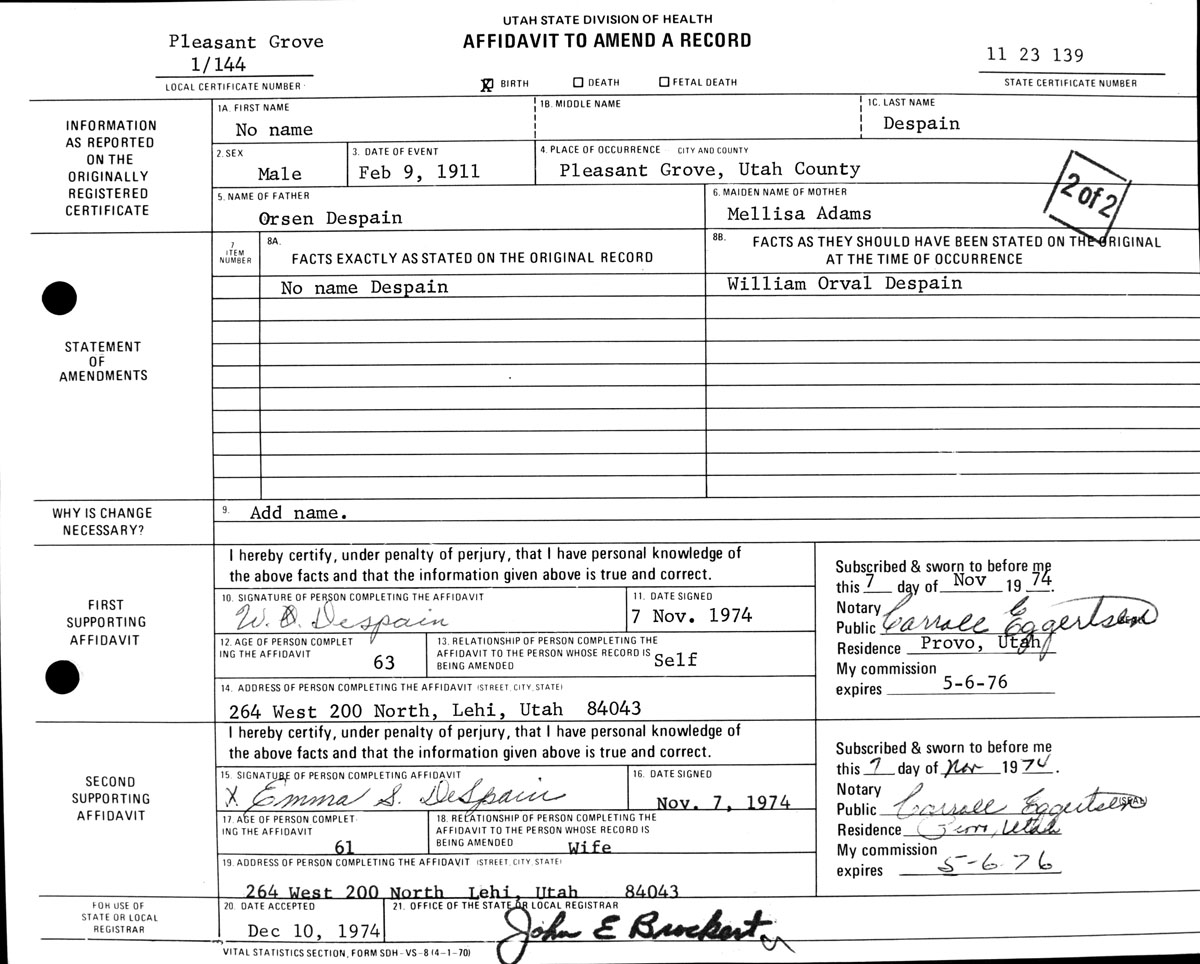 UTAH STATE DIVISION OF HEALTH
AFFIDAVIT TO AMEND A RECORD
Pleasant Grove
1/144
LOCAL CERTIFICATE NUMBER
X BIRTH DEATH FETAL DEATH
11 23 139
STATE CERTIFICATE NUMBER
INFORMATION
AS REPORTED
ON THE
ORIGINALLY
REGISTERED
CERTIFICATE
1A. FIRST NAME
No name
1B. MIDDLE NAME
1C. LAST NAME
Despain
2. SEX
Male
3. DATE OF EVENT
Feb 9, 1911
4. PLACE OF OCCURRENCE CITY AND COUNTY
Pleasant Grove, Utah County
2 of 2
5. NAME OF FATHER
Orsen Despain
6. MAIDEN NAME OF MOTHER
Mellisa Adams
STATEMENT
OF
AMENDMENTS
7
ITEM
NUMBER
8A.
FACTS EXACTLY AS STATED ON THE ORIGINAL RECORD
8B. FACTS AS THEY SHOULD HAVE BEEN STATED ON THE ORIGINAL
AT THE TIME OF OCCURRENCE
No name Despain
William Orval Despain
WHY IS CHANGE
NECESSARY?
9. Add name.
FIRST
SUPPORTING
AFFIDAVIT
I hereby certify, under penalty of perjury, that I have personal knowledge of
the above facts and that the information given above is true and correct.
10. SIGNATURE OF PERSON COMPLETING THE AFFIDAVIT
W. O. Despain
11. DATE SIGNED
7 Nov. 1974
12. AGE OF PERSON COMPLET
ING THE AFFIDAVIT
63
13. RELATIONSHIP OF PERSON COMPLETING THE
AFFIDAVIT TO THE PERSON WHOSE RECORD IS
BEING AMENDED
Self
14. ADDRESS OF PERSON COMPLETING THE AFFIDAVIT (STREET, CITY, STATE)
264 West 200 North, Lehi, Utah 84043
Subscribed & sworn to before me
this 7 day of Nov 19 74.
Notary
Public Carroll Eggertsen
Residence Provo, Utah
My commission
expires 5-6-76
SECOND
SUPPORTING
AFFIDAVIT
I hereby certify, under penalty of perjury, that I have personal knowledge of
the above facts and that the information given above is true and correct.
15. SIGNATURE OF PERSON COMPLETING AFFIDAVIT
X Emma S. DeSpain
16. DATE SIGNED
Nov. 7, 1974
17. AGE OF PERSON COMPLET-
ING THE AFFIDAVIT
61
18. RELATIONSHIP OF PERSON COMPLETING THE
AFFIDAVIT TO THE PERSON WHOSE RECORD IS
BEING AMENDED
Wife
19. ADDRESS OF PERSON COMPLETING THE AFFIDAVIT (STREET, CITY, STATE)
264 West 200 North Lehi, Utah 84043
Subscribed & sworn to before me
this 7 day of Nov 1974.
Notary
Public Carroll Eggertsen (SEAL)
Residence Provo, Utah
My commission
expires 5-6-76
FOR USE OF
STATE OR LOCAL
REGISTRAR
20. DATE ACCEPTED
Dec 10, 1974
21. OFFICE OF THE STATE OR LOCAL REGISTRAR
John E Brockert
VITAL STATISTICS SECTION, FORM SDH-VS-8 (4-1-70)